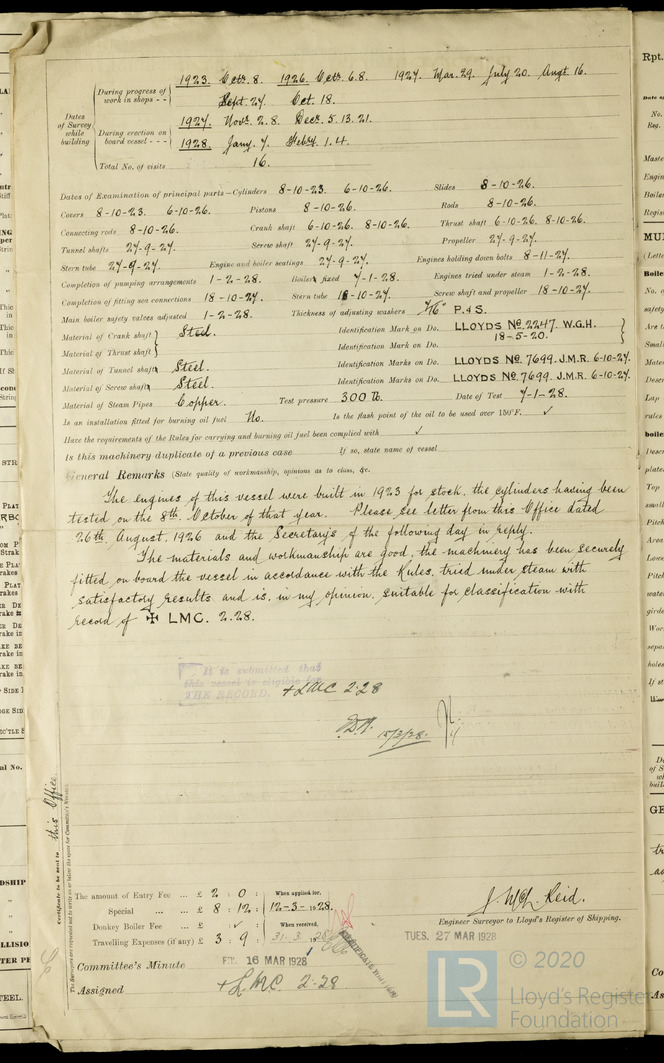 1923. Octr. 8. 1926. Octr. 6. 8. 1927. Mar. 29. July 20. Augt. 16.
During progress of work in shops - -
Sept. 27. Oct. 18.
Dates of Survey while building
During erection on board vessel - - -
1927. Novr. 2. 8. Decr. 5. 13. 21.
1928. Jany. 7. Feby. 1. 4.
Total No. of visits 16.
Dates of Examination of principal parts—Cylinders 8-10-23. 6-10-26. Slides 8-10-26.
Covers 8-10-23. 6-10-26. Pistons 8-10-26. Rods 8-10-26.
Connecting rods 8-10-26. Crank shaft 6-10-26. 8-10-26. Thrust shaft 6-10-26. 8-10-26.
Tunnel shafts 27-9-27. Screw shaft 27-9-27. Propeller 27-9-27.
Stern tube 27-9-27. Engine and boiler seatings 27-9-27. Engines holding down bolts 8-11-27.
Completion of pumping arrangements 1-2-28. Boilers fixed 7-1-28. Engines tried under steam 1-2-28.
Completion of fitting sea connections 18-10-27. Stern tube 18-10-27. Screw shaft and propeller 18-10-27.
Main boiler safety valves adjusted 1-2-28. Thickness of adjusting washers 7/16" P. & S.
Material of Crank shaft Steel. Identification Mark on Do. LLOYDS No. 2247. W.G.H.
Material of Thrust shaft Identification Mark on Do. 18-5-20.
Material of Tunnel shafts Steel. Identification Marks on Do. LLOYDS No. 7699. J.M.R. 6-10-27.
Material of Screw shafts Steel. Identification Marks on Do. LLOYDS No. 7699. J.M.R. 6-10-27.
Material of Steam Pipes Copper. Test pressure 300 lb. Date of Test 7-1-28.
Is an installation fitted for burning oil fuel No. Is the flash point of the oil to be used over 150°F. ✓
Have the requirements of the Rules for carrying and burning oil fuel been complied with ✓
Is this machinery duplicate of a previous case If so, state name of vessel
General Remarks (State quality of workmanship, opinions as to class, &c.
The engines of this vessel were built in 1923 for stock, the cylinders having been
tested on the 8th. October of that year. Please see letter from this Office dated
26th. August, 1926 and the Secretary's of the following day in reply.
The materials and workmanship are good, the machinery has been securely
fitted on board the vessel in accordance with the Rules, tried under steam with
satisfactory results and is, in my opinion, suitable for classification with
record of ✠ LMC. 2.28.
It is submitted that
this vessel is eligible for
THE RECORD. + LMC 2.28
15/3/28.
Certificate to be sent to this Office
The Surveyors are requested not to write on or below the space for Committee's Minute.
The amount of Entry Fee ... £ 2 : 0 : When applied for,
Special ... £ 8 : 12 : 12-3-1928.
Donkey Boiler Fee ... £ ✓ When received,
Travelling Expenses (if any) £ 3 : 9 : 31.3.1928
J. McL. Reid.
Engineer Surveyor to Lloyd's Register of Shipping.
TUES. 27 MAR 1928
Committee's Minute FRI. 16 MAR 1928
Assigned + LMC 2.28
CERTIFICATE WRITTEN
LR © 2020
Lloyd's Register
Foundation